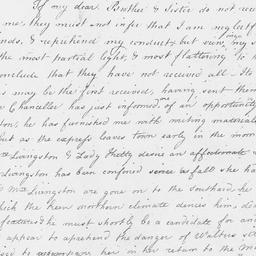 If my dear Brother & Sister do not rece
me, they must not infer that I am neglectf
nds, & reprehend my conduct but view my
the most partial light, & most flattering to
onclude that they have not received all - Its
is may be the first received, having sent them
e Chancellor has just informed me of an opportunity
ton, he has furnished me with writing materials
but as the express leaves town early in the morn
Livingston & Lady Kitty desire an affectionate
Livingston has been confined since as fall she ha
Mrs Livingston are gone on to the Southard, he
hich the keen northern climate denies him, dea
he must shortly be a candidate for an
appear to apprehend the danger of Walters sit
her in her return to the